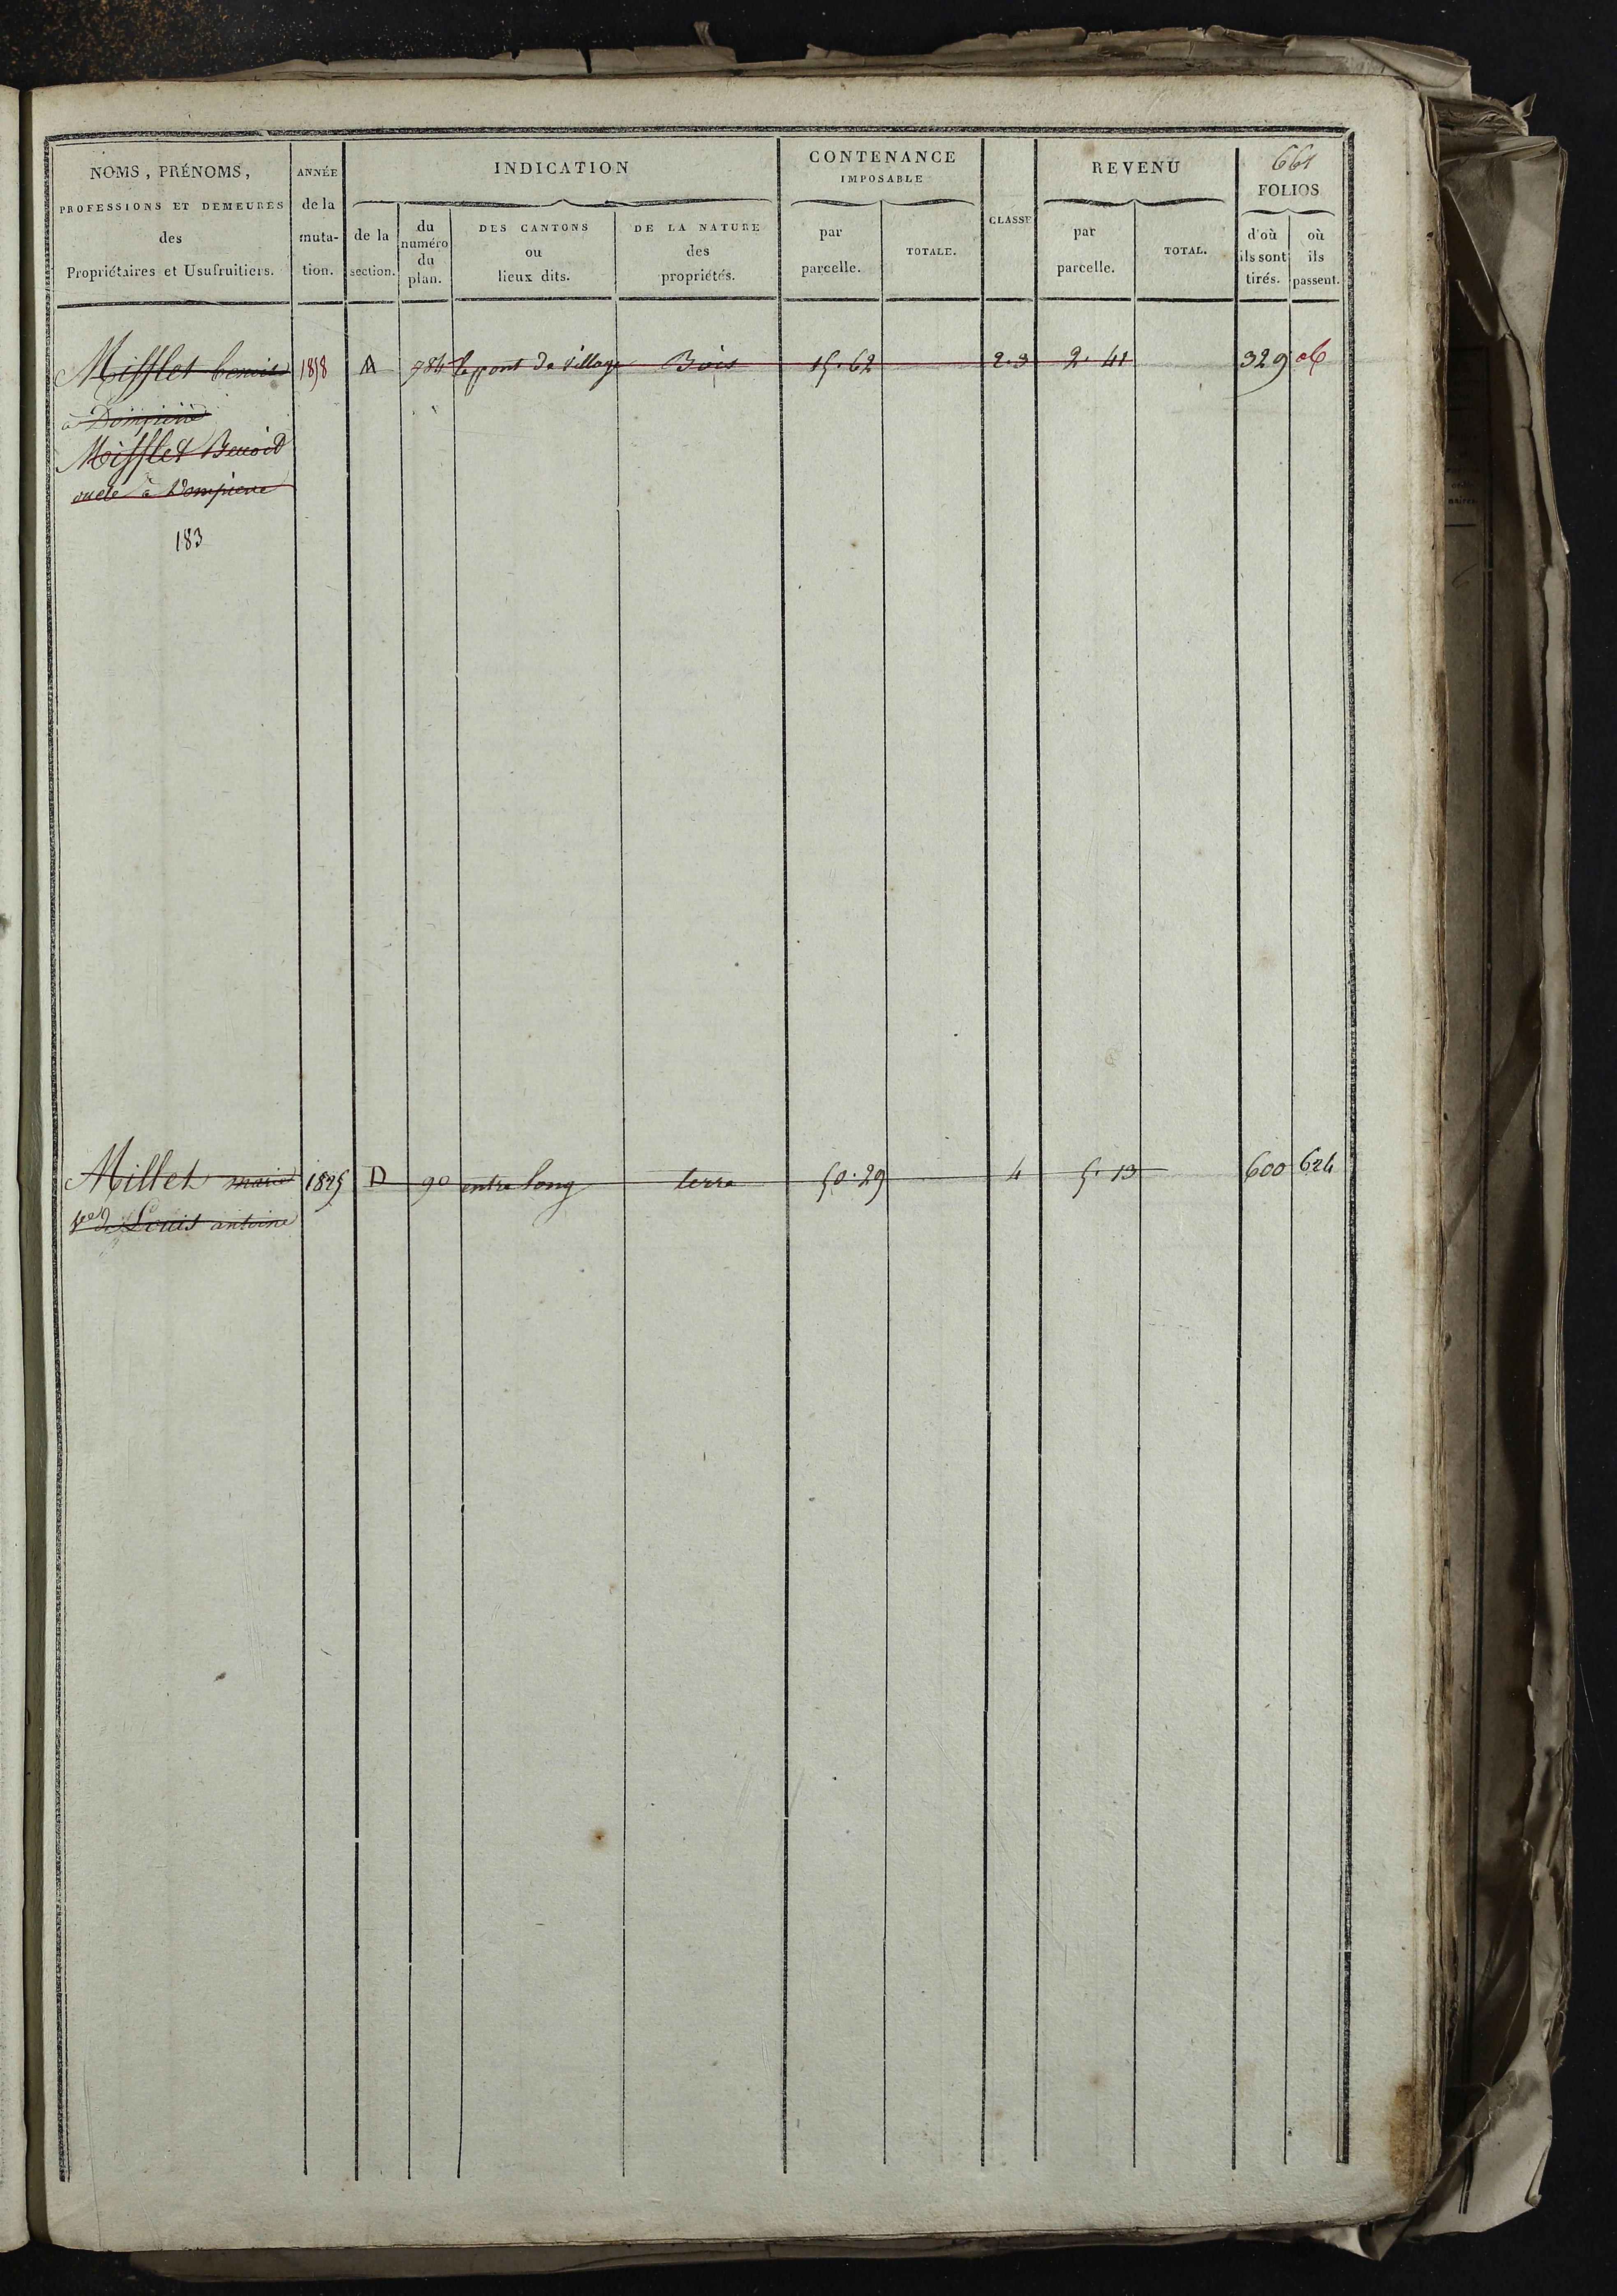 661
NOMS, PRÉNOMS,
PROFESSIONS ET DEMEURES
des
Propriétaires et Usufruitiers.
ANNÉE
de la
muta-
tion.
INDICATION
de la
section.
du
numéro
du
plan.
DES CANTONS
ou
lieux dits.
DE LA NATURE
des
propriétés.
CONTENANCE
IMPOSABLE
par
parcelle.
TOTALE.
CLASSE
REVENU
par
parcelle.
TOTAL.
FOLIOS
d'où
ils sont
tirés.
où
ils
passent.
Mifflet benoit 1858 A 784 le pont de village Bois 15.62 2.3 2.41 329
à Dompierre
Mifflet Benoit
oncle à Dompierre
183
Millet marie 1825 D 90 entre long terre 50.29 4 5.13 600 624
ve de Louis antoine